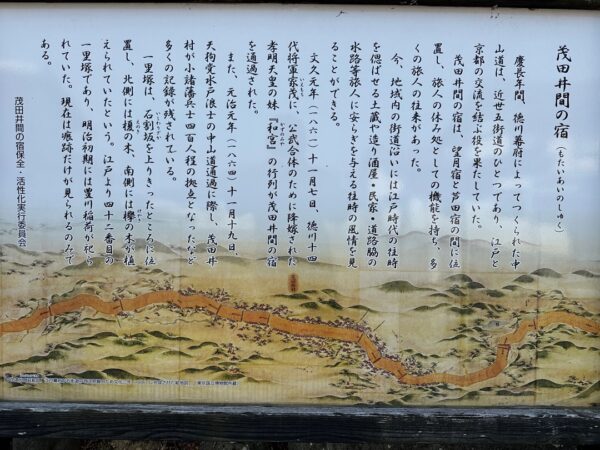 茂田井間の宿（もたいあいのしゅく）
慶長年間、徳川幕府によってつくられた中
山道は、近世五街道のひとつであり、江戸と
京都の交流を結ぶ役を果たしていた。
茂田井間の宿は、望月宿と芦田宿の間に位
置し、旅人の休み処としての機能を持ち、多
くの旅人の往来があった。
今、地域内の街道沿いには江戸時代の往時
を偲ばせる土蔵や造り酒屋・民家・道路脇の
水路等旅人に安らぎを与える往時の風情を見
ることができる。
文久元年（一八六一）十一月七日、徳川十四
代将軍家茂に、公武合体のために降嫁された
いえもち
孝明天皇の妹『和宮』の行列が茂田井間の宿
かずのみや
を通過された。
また、元治元年（一八六四）十一月十九日、
天狗党水戸浪士の中山道通過に際し、茂田井
村が小諸藩兵士四百人程の拠点となったなど
多くの記録が残されている。
一里塚は、石割坂を上りきったところに位
いちりづか
置し、北側には榎の木、南側には欅の木が植
えられていたという。江戸より四十二番目の
一里塚であり、明治初期には豊川稲荷が祀ら
れていた。現在は痕跡だけが見られるのみで
ある。
茂田井間の宿保全・活性化実行委員会